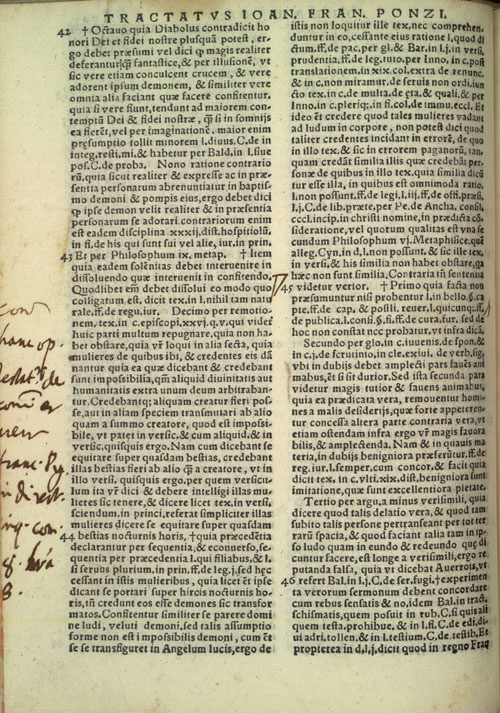 TRACTATVS IOAN. FRAN. PONZI.
42 † Octauo quia Diabolus contradicit ho
nori Dei et fidei nostre plusquã potest, er-
go debet præsumi vel dici ꝙ magis realiter
deferantur quã fantastice, & per illusionẽ, vt
sic vere etiam conculcent crucem, & vere
adorent ipsum demonem, & similiter vere
omnia alia faciant quæ facere confitentur.
quia si vere fiunt, tendunt ad maiorem con-
temptũ Dei & fidei nostræ, quã si in somnijs
ea fierẽt, vel per imaginationẽ. maior enim
præsumptio tollit minorem l. diuus. C. de in
integ. resti. mi. & habetur per Bald. in l. siue
pos. C. de proba. Nono ratione contrario
rũ, quia sicut realiter & expresse ac in præ-
sentia personarum abrenuntiatur in baptis-
mo demoni & pompis eius, ergo debet dici
ꝙ ipse demon velit realiter & in præsentia
personarum se adorari. contrariorum enim
est eadem disciplina. xxxij. dist. hospitiolũ.
in fi. de his qui sunt sui vel alie. iur. in prin.
43 Et per Philosophum ix. metap. † Item
quia eadem solẽnitas debet interuenire in
dissoluendo quæ interuenit in constituendo.
Quodlibet em̃ debet dissolui eo modo quo
colligatum est, dicit tex. in l. nihil tam natu
rale. ff. de regu. iur. Decimo per remotio-
nem. tex. in c. episcopi. xxvj. q. v. qui videt̃
huic parti multum repugnare, quia non ha-
bet obstare, quia vr̃ loqui in alia secta, quia
mulieres de quibus ibi, & credentes eis dã
nantur quia ea quæ dicebant & credebant
sunt impossibilia, quã aliquid diuinitatis aut
humanitatis extra vnum deum arbitraban-
tur. Credebantq; aliquam creatur fieri pos-
se, aut in aliam speciem transmutari ab alio
quam a summo creatore, quod est impossi-
bile, vt patet in versic. & cum aliquid. & in
versic. quisquis ergo. Nam cum dicebant se
equitare super quasdam bestias, credebant
illas bestias fieri ab alio quã a creatore, vt in
illo versi. quisquis ergo. per quem versicu-
lum ita vr̃ dici & debere intelligi illas mu-
lieres sic tenere, & dicere licet tex. in versi.
sciendum. in princi. referat simpliciter illas
mulieres dicere se equitare super quasdam
44 bestias nocturnis horis, † quia præcedẽtia
declarantur per sequentia, & econuerso, se-
quentia per præcedentia l. qui filiabus. & l.
si seruus plurium. in prin. ff. de leg. j. sed hęc
cessant in istis mulieribus, quia licet ẽt ipse
dicant se portari super hircos nocturnis ho-
ris, tñ credunt eos esse demones sic transfor
matos. Confitentur similiter se parere domi
ne ludi, veluti demoni, sed talis assumptio
forme non est impossibilis demoni, cum ẽt
se se transfiguret in Angelum lucis, ergo de
istis non loquitur ille tex. nec comprehen-
duntur in eo, cessante eius ratione l. quod di
ctum. ff. de pac. per gl. & Bar. in l. j. in versi.
prudentia. ff. de leg. tuto. per Inno. in c. post
translationem. in xix. col. extra de renunc.
& in c. non miramur. de seruis non ordi. iun
cto tex. in c. de multa. de ęta. & quali. & per
Inno. in c. pleriq;. in fi. col. de immu. eccl. Et
ideo ẽt credere quod tales mulieres vadant
ad ludum in corpore, non potest dici quod
taliter credentes incidant in errorẽ, de quo
in illo tex. & sic in errorem paganorũ, tan-
quam credãt similia illis quæ credebãt per-
sonæ de quibus in illo tex. quia similia dicũ
tur esse illa, in quibus est omnimoda ratio.
l. non possunt. ff. de legi. l. iij. ff. de offi. præsi.
l. j. C. de lib. præte. per Pe. de Ancha. consi.
cccl. incip. in christi nomine, in prædicta cõ-
sideratione, vel quorum qualitas est vna se
cundum Philosophum vj. Metaphisicę. quẽ
alleg. Cyn. in d. l. non possunt. & sic ille tex.
in versi. & his similia non habet obstare, ga
hæc non sunt similia. Contraria tñ sententia
45 videtur verior. † Primo quia facta non
præsumuntur nisi probentur l. in bello. §. ca
pte. ff. de cap. & postli. reuer. l. quicunq;. ff.
de publica. l. consi. §. fi. ff. de cura. fur. sed de
hoc non constat nec probatur, vt infra dicã.
Secundo per glo. in c. iuuenis. de spon. &
in c. j. de scrutinio. in cle. exiui. de verb. sig.
vbi in dubijs debet amplecti pars fauẽs ani
mabus, ẽt si sit durior. Sed ista secunda pars
videtur magis tutior & fauens animabus,
quia ea prædicata vera, remouentur homi-
nes a malis desiderijs, quæ forte appeteren-
tur concessa altera parte contraria vera, vt
etiam ostendam infra ergo vr̃ magis fauora
bilis, & amplectenda. Nam & in quauis ma
teria, in dubijs benigniora præferũtur. ff. de
reg. iur. l. semper. cum concor. & facit quia
dicit tex. in c. vlti. xix. dist. benigniora sunt
imitatione, quæ sunt excellentiora pietate.
Tertio per argu. a minus verisimili, quia
dicere quod talis delatio vera, & quod tam
subito talis persone pertranseant per tot ter
rarũ spacia, & quod faciant talia tam in ip-
so ludo quam in eundo & redeundo quę di
cuntur facere, est longe a verisimili, ergo re
putanda falsa, quia vt dicebat Auerrois, vt
46 refert Bal. in l. j. C. de ser. fugi. † experimen
ta verorum sermonum debent concordare
cum rebus sensatis & no. idem Bal. in tract.
schismatis, quem posuit in rub. C. si quis ali
quem testa. prohibue. & in l. fi. C. de edi. di-
ui adri. tollen. & in l. testium. C. de testib. Et
propterea in d. l. j. dicit quod in regno Fran